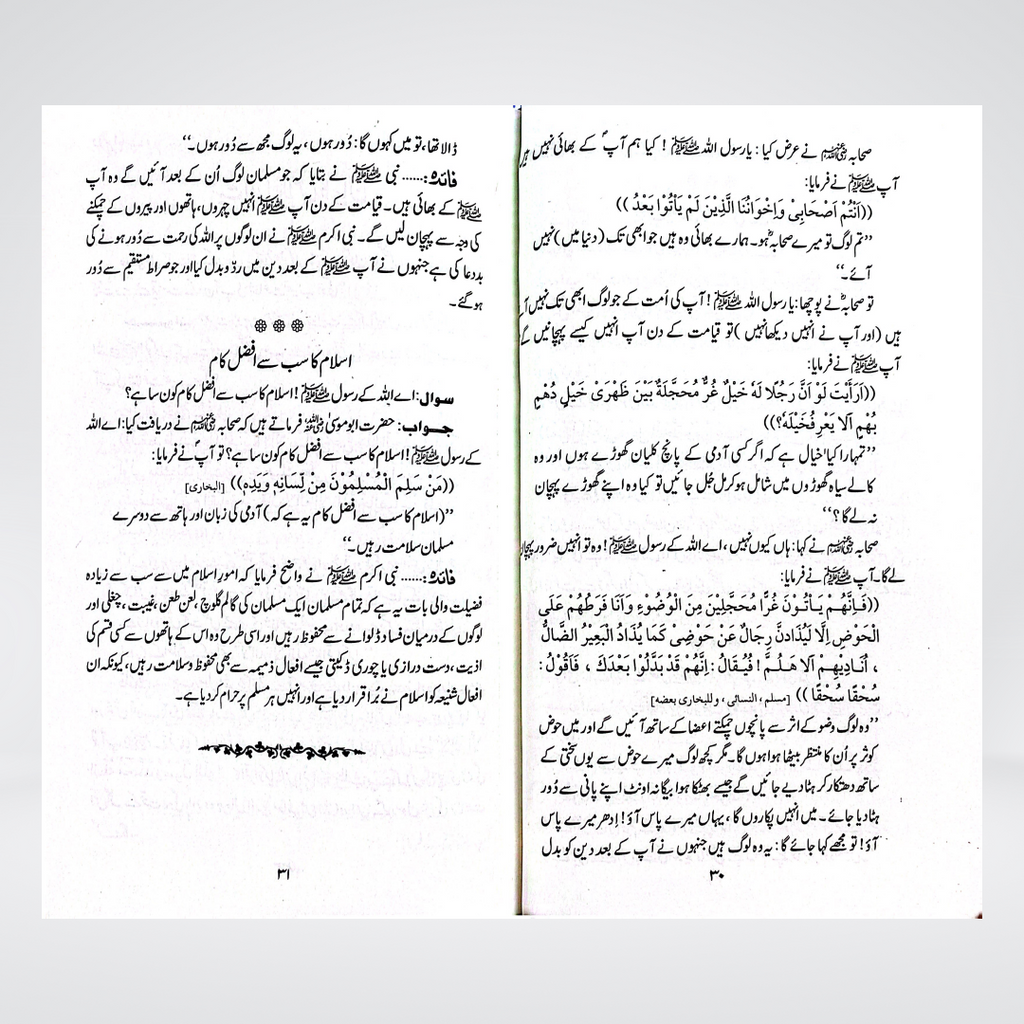 صحابہ رضی اللہ عنہم نے عرض کیا: یارسول اللہ ﷺ! کیا ہم آپؐ کے بھائی نہیں ہیں
آپ ﷺ نے فرمایا:
((اَنْتُمْ اَصْحَابِیْ وَاِخْوَانُنَا الَّذِیْنَ لَمْ یَاْتُوْا بَعْدُ))
”تم لوگ تو میرے صحابہؓ ہو۔ ہمارے بھائی وہ ہیں جو ابھی تک (دنیا میں) نہیں
آئے۔“
تو صحابہؓ نے پوچھا: یا رسول اللہ ﷺ! آپ کی اُمت کے جو لوگ ابھی تک نہیں آ
ہیں (اور آپ نے انہیں دیکھا نہیں) تو قیامت کے دن آپ انہیں کیسے پہچانیں گے
آپ ﷺ نے فرمایا:
((اَرَاَیْتَ لَوْ اَنَّ رَجُلًا لَهُ خَیْلٌ غُرٌّ مُحَجَّلَةٌ بَیْنَ ظَهْرَیْ خَیْلٍ دُهْمٍ
بُهْمٍ اَلَا یَعْرِفُ خَیْلَهُ؟))
”تمہارا کیا خیال ہے کہ اگر کسی آدمی کے پانچ کلیان گھوڑے ہوں اور وہ
کالے سیاہ گھوڑوں میں شامل ہو کر مل جُل جائیں تو کیا وہ اپنے گھوڑے پہچان
نہ لے گا؟“
صحابہ رضی اللہ عنہم نے کہا: ہاں کیوں نہیں، اے اللہ کے رسول ﷺ! وہ تو انہیں ضرور پہچا
لے گا۔ آپ ﷺ نے فرمایا:
((فَاِنَّهُمْ یَاْتُوْنَ غُرًّا مُحَجَّلِیْنَ مِنَ الْوُضُوْءِ وَاَنَا فَرَطُهُمْ عَلَی
الْحَوْضِ اِلَّا لَیُذَادنَّ رِجَالٌ عَنْ حَوْضِیْ کَمَا یُذَادُ الْبَعِیْرُ الضَّالُّ
، اُنَادِیْهِمْ اَلَا هَلُمَّ! فَیُقَالُ: اِنَّهُمْ قَدْ بَدَّلُوْا بَعْدَكَ، فَاَقُوْلُ:
سُحْقًا سُحْقًا)) [مسلم، النسائی، وللبخاری بعضہ]
”وہ لوگ وضو کے اثر سے پانچوں چمکتے اعضا کے ساتھ آئیں گے اور میں حوض
کوثر پر اُن کا منتظر بیٹھا ہوا ہوں گا۔ مگر کچھ لوگ میرے حوض سے یوں سختی کے
ساتھ دھتکار کر ہٹا دیے جائیں گے جیسے بھٹکا ہوا بیگانہ اونٹ اپنے پانی سے دُور
ہٹا دیا جائے۔ میں انہیں پکاروں گا، یہاں میرے پاس آؤ! اِدھر میرے پاس
آؤ! تو مجھے کہا جائے گا: یہ وہ لوگ ہیں جنہوں نے آپ کے بعد دین کو بدل
۳۰
ڈالا تھا، تو میں کہوں گا: دُور ہوں، یہ لوگ مجھ سے دُور ہوں۔“
فائدہ:...... نبی ﷺ نے بتایا کہ جو مسلمان لوگ اُن کے بعد آئیں گے وہ آپ
ﷺ کے بھائی ہیں۔ قیامت کے دن آپ ﷺ انہیں چہروں، ہاتھوں اور پیروں کے چمکنے
کی وجہ سے پہچان لیں گے۔ نبی اکرم ﷺ نے ان لوگوں پر اللہ کی رحمت سے دُور ہونے کی
بددعا کی ہے جنہوں نے آپ ﷺ کے بعد دین میں ردّ و بدل کیا اور جو صراط مستقیم سے دُور
ہو گئے۔
اسلام کا سب سے افضل کام
سوال: اے اللہ کے رسول ﷺ! اسلام کا سب سے افضل کام کون سا ہے؟
جواب: حضرت ابو موسیٰ رضی اللہ عنہ فرماتے ہیں کہ صحابہ رضی اللہ عنہم نے دریافت کیا: اے اللہ
کے رسول ﷺ! اسلام کا سب سے افضل کام کون سا ہے؟ تو آپؐ نے فرمایا:
((مَنْ سَلِمَ الْمُسْلِمُوْنَ مِنْ لِّسَانِهٖ وَیَدِهٖ)) [البخاری]
”(اسلام کا سب سے افضل کام یہ ہے کہ) آدمی کی زبان اور ہاتھ سے دوسرے
مسلمان سلامت رہیں۔“
فائدہ:...... نبی اکرم ﷺ نے واضح فرمایا کہ امورِ اسلام میں سے سب سے زیادہ
فضیلت والی بات یہ ہے کہ تمام مسلمان ایک مسلمان کی گالم گلوچ، لعن طعن، غیبت، چغلی اور
لوگوں کے درمیان فساد ڈلوانے سے محفوظ رہیں اور اسی طرح وہ اس کے ہاتھوں سے کسی قسم کی
اذیت، دست درازی یا چوری ڈکیتی جیسے افعال ذمیمہ سے بھی محفوظ و سلامت رہیں، کیونکہ ان
افعال شنیعہ کو اسلام نے بُرا قرار دیا ہے اور انہیں ہر مسلم پر حرام کر دیا ہے۔
۳۱